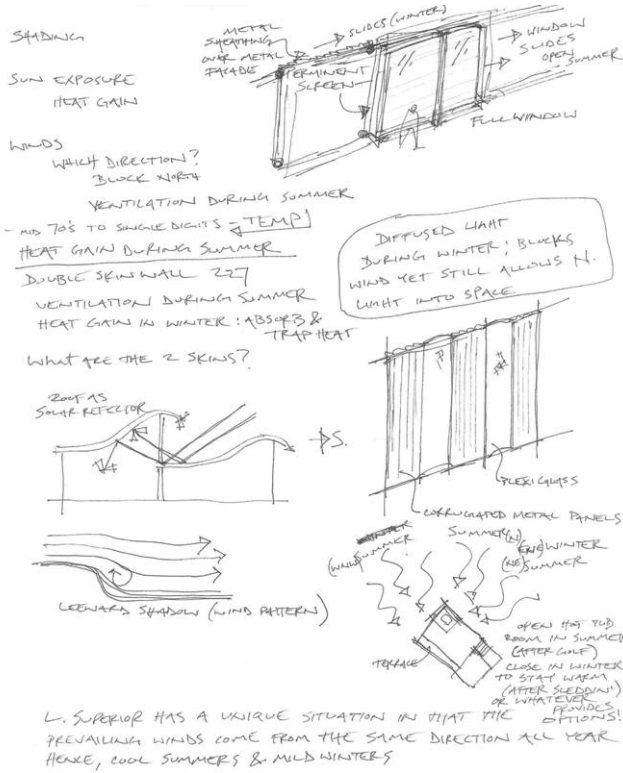 SHADING
SUN EXPOSURE
HEAT GAIN
WINDS
WHICH DIRECTION?
BLOCK NORTH
VENTILATION DURING SUMMER
- MID 70'S TO SINGLE DIGITS - TEMP
HEAT GAIN DURING SUMMER
DOUBLE SKIN WALL
VENTILATION DURING SUMMER
HEAT GAIN IN WINTER: ABSORB &
TRAP HEAT
WHAT ARE THE 2 SKINS?
METAL
SHEATHING
OVER METAL
FACADE
SLIDES (WINTER)
PERMINENT
SCREEN
WINDOW
SLIDES
OPEN
SUMMER
FULL WINDOW
DIFFUSED LIGHT
DURING WINTER; BLOCKS
WIND YET STILL ALLOWS N.
LIGHT INTO SPACE
ROOF AS
SOLAR REFLECTOR
S.
PLEXIGLASS
CORRUGATED METAL PANELS
LEEWARD SHADOW (WIND PATTERN)
(WNW) SUMMER
SUMMER (N)
(ENE) WINTER
(NE) SUMMER
TERRACE
OPEN HOT TUB
ROOM IN SUMMER
(AFTER GOLF)
CLOSE IN WINTER
TO STAY WARM
(AFTER SLEDDIN')
OR WHATEVER
PROVIDES
OPTIONS!
L. SUPERIOR HAS A UNIQUE SITUATION IN THAT THE
PREVAILING WINDS COME FROM THE SAME DIRECTION ALL YEAR
HENCE, COOL SUMMERS & MILD WINTERS